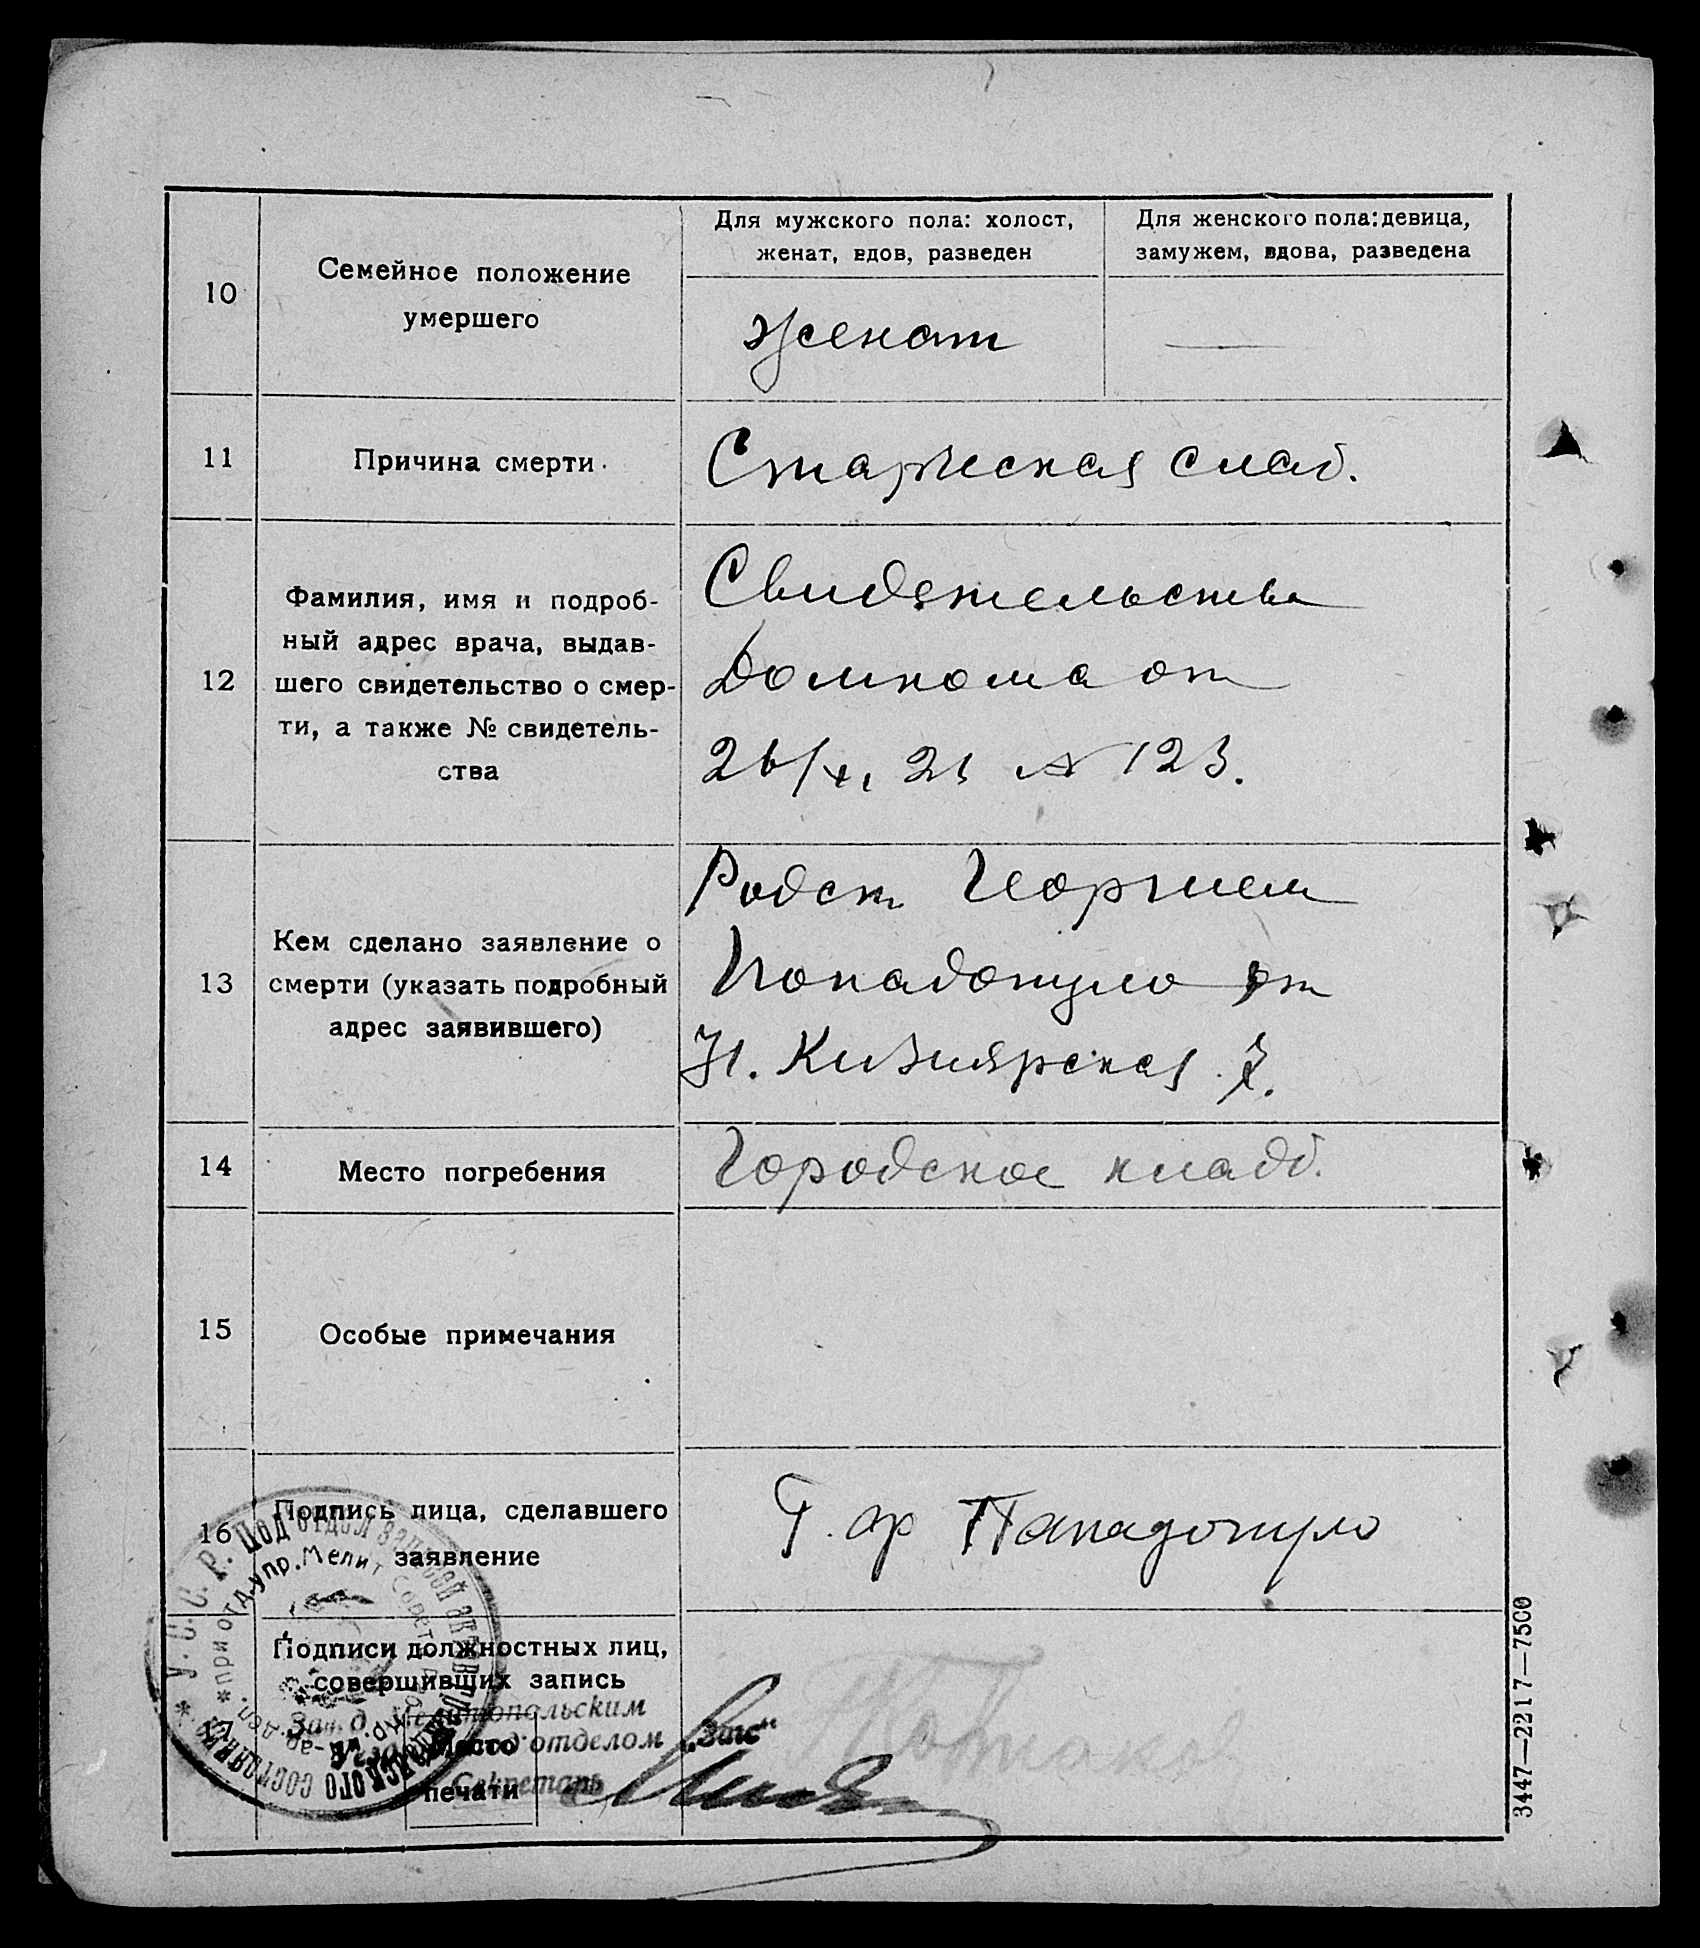 10
Семейное положение
умершего
Для мужского пола: холост,
женат, вдов, разведен
Для женского пола: девица,
замужем, вдова, разведена
Женат
11
Причина смерти
Старческая слаб.
12
Фамилия, имя и подроб-
ный адрес врача, выдав-
шего свидетельство о смер-
ти, а также № свидетель-
ства
Свидетельства
Домкома от
№ 123.
13
Кем сделано заявление о
смерти (указать подробный
адрес заявившего)
Родст Георгием
Попадопуло
Н. Кизиярская 7.
14
Место погребения
Городское кладб.
15
Особые примечания
16
Подпись лица, сделавшего
заявление
Г. Пападопуло
Подписи должностных лиц,
совершивших запись
Мелитопольским
подотделом „Загс“
Секретарь
Место
печати
У. С. С. Р. Подотдел записей актов гражданского состояния
при отд. упр. Мелит
3447—2217—7500